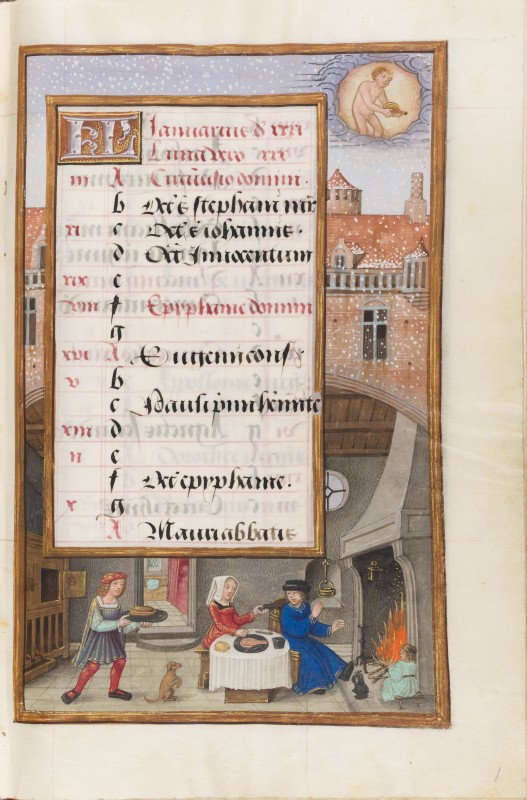 KL Januarius d xxxi
Luna vero xxx
iii A Circu̅cisio domini.
b Oct̅ s̅ stephani mr̅
xi c Oct̅ s̅ iohannis.
d Oct̅ Innocentum
xix e
viii f Epyphanie domini
g
xvi A Eugenii conf
b
v
c Pauli primi h̅emite
xiii d
ii e
f Oct̅ epyphanie.
x g
A Mauri abbatis